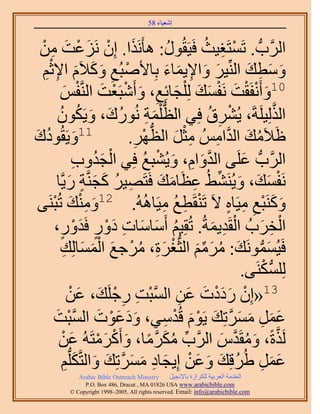 إشعياء 58
الرَّبُّ. تَسْتَغِيثُ فَيَقُولُ: هأَنَذَا. إِنْ نَزَعْتَ مِنْ
وَسَطِكَ النِّيرَ وَالإِيمَاءَ بِالأصْبُعِ وَكَلاَمَ الإِثْمِ
10وَأَنْفَقْتَ نَفْسَكَ لِلْجَائِعِ، وَأَشْبَعْتَ النَّفْسَ
الذَّلِيلَةَ، يُشْرِقُ فِي الظُّلْمَةِ نُورُكَ، وَيَكُونُ
ظَلاَمُكَ الدَّامِسُ مِثْلَ الظُّهْرِ. 11وَيَقُودُكَ
الرَّبُّ عَلَى الدَّوَامِ، وَيُشْبِعُ فِي الْجَدُوبِ
نَفْسَكَ، وَيُنَشِّطُ عِظَامَكَ فَتَصِيرُ كَجَنَّةٍ رَيَّا
وَكَنَبْعِ مِيَاهٍ لاَ تَنْقَطِعُ مِيَاهُهُ. 12وَمِنْكَ تُبْنَى
الْخِرَبُ الْقَدِيمَةُ. تُقِيمُ أَسَاسَاتِ دَوْرٍ فَدَوْرٍ،
فَيُسَمُّونَكَ: مُرَمِّمَ الثُّغْرَةِ، مُرْجعَ الْمَسَالِكِ
لِلسُّكْنَى.
13«إِنْ رَدَدْتَ عَنِ السَّبْتِ رِجْلَكَ، عَنْ
عَمَلِ مَسَرَّتِكَ يَوْمَ قُدْسِي، وَدَعَوْتَ السَّبْتَ
لَذَّةً، وَمُقَدَّسَ الرَّبِّ مُكَرَّمًا، وَأَكْرَمْتَهُ عَنْ
عَمَلِ طُرُقِكَ وَعَنْ إِيجَادِ مَسَرَّتِكَ وَالتَّكَلُّمِ
الخدمة العربية للكرازة بالإنجيل Arabic Bible Outreach Ministry
P.O. Box 486, Dracut , MA 01826 USA www.arabicbible.com
Copyright 1998-2005, All rights reserved. Email: info@arabicbible.com ©